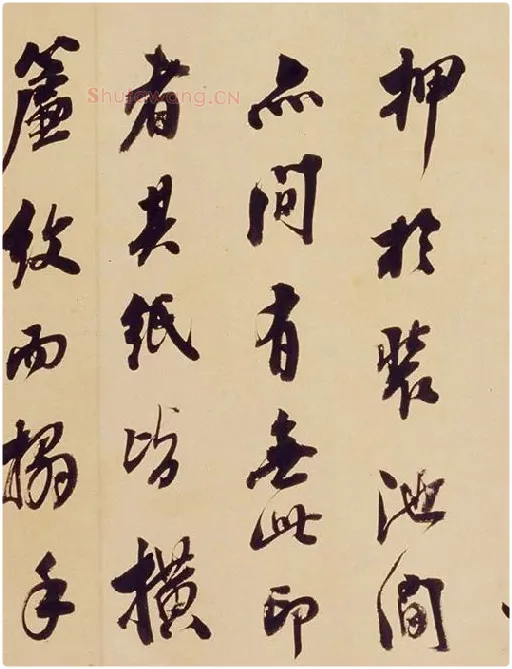 押於裝池間
亦間有無此印
者其紙皆橫
簾紋而搨手
Shufawang.CN